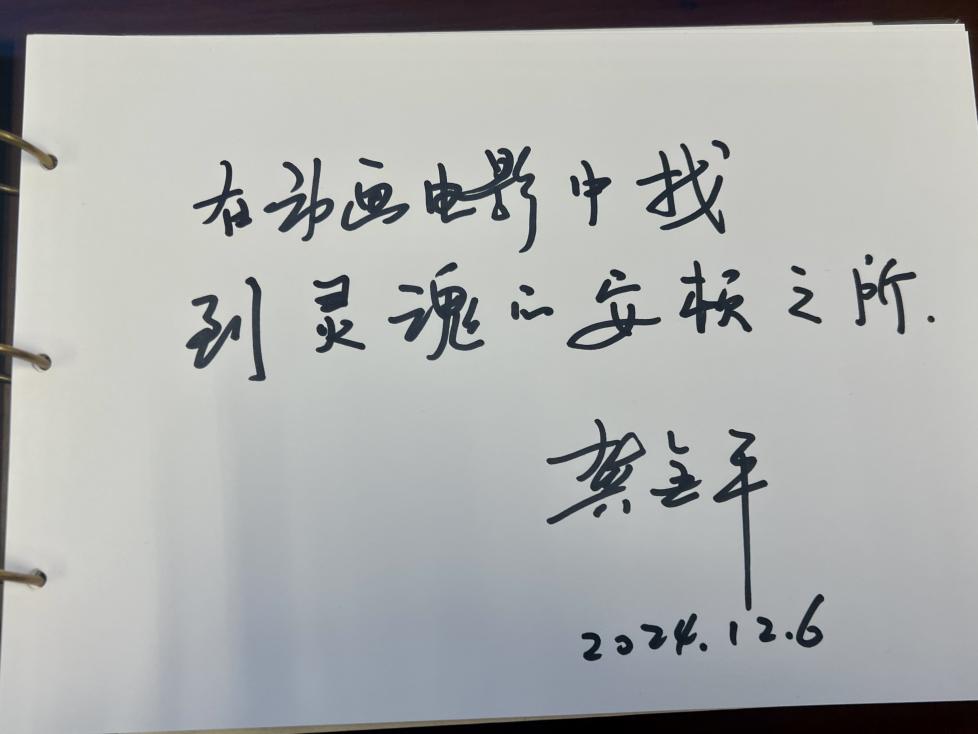 在动画电影中找
到灵魂的安顿之所.
龚金平
2024.12.6